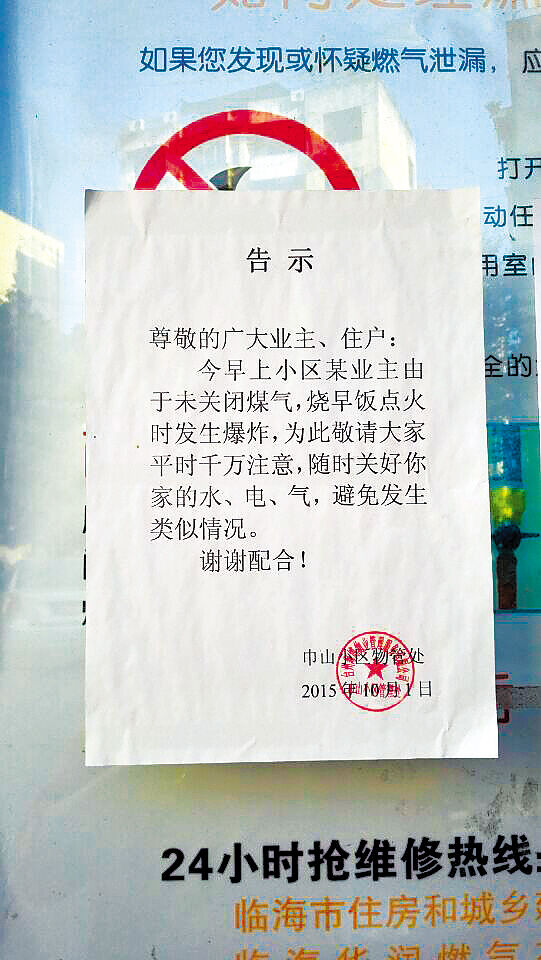 如果您发现或怀疑燃气泄漏，应
打开
动任
用室
全的
告示
尊敬的广大业主、住户：
今早上小区某业主由
于未关闭煤气，烧早饭点火
时发生爆炸，为此敬请大家
平时千万注意，随时关好你
家的水、电、气，避免发生
类似情况。
谢谢配合！
巾山小区物管处
2015年10月1日
24小时抢维修热线:
临海市住房和城乡
临海华润燃气